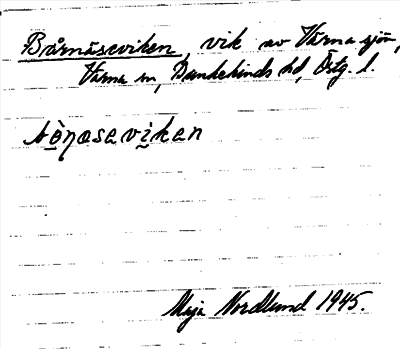 Bårnäseviken, vik av Värna sjön,
Värna sn, Bankekinds hd, Östg. l.
bò̱ṇæsevi̱ken
Maja Nordlund 1945.